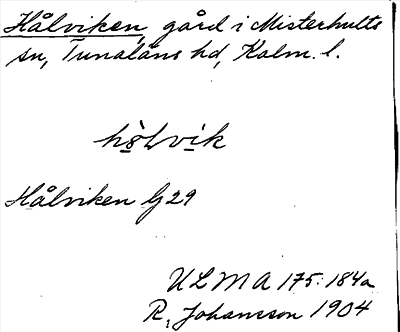 Hålviken, gård i Misterhults
sn, Tunaläns hd, Kalm. l.
Hålviken G 29
ULMA 175:184a
R. Johansson 1904